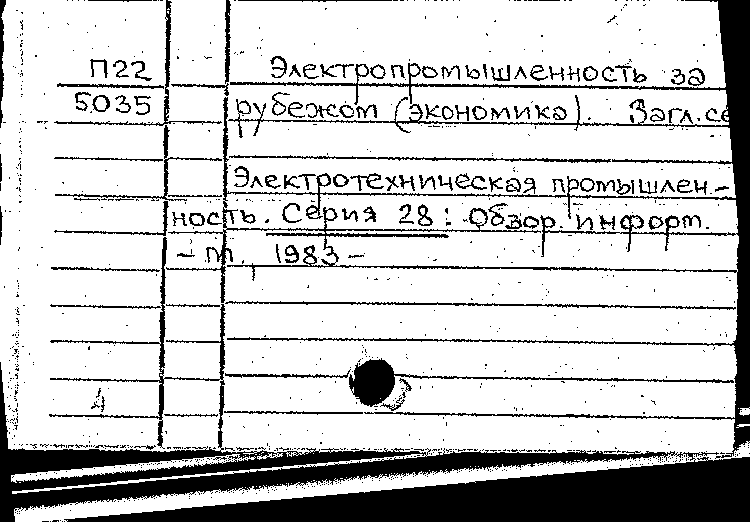 П22 Электропромышленность за
5035 рубежом (экономика). Загл. се
Электротехническая промышлен-
ность. Серия 28: Обзор. информ.
– М., 1983 –
4